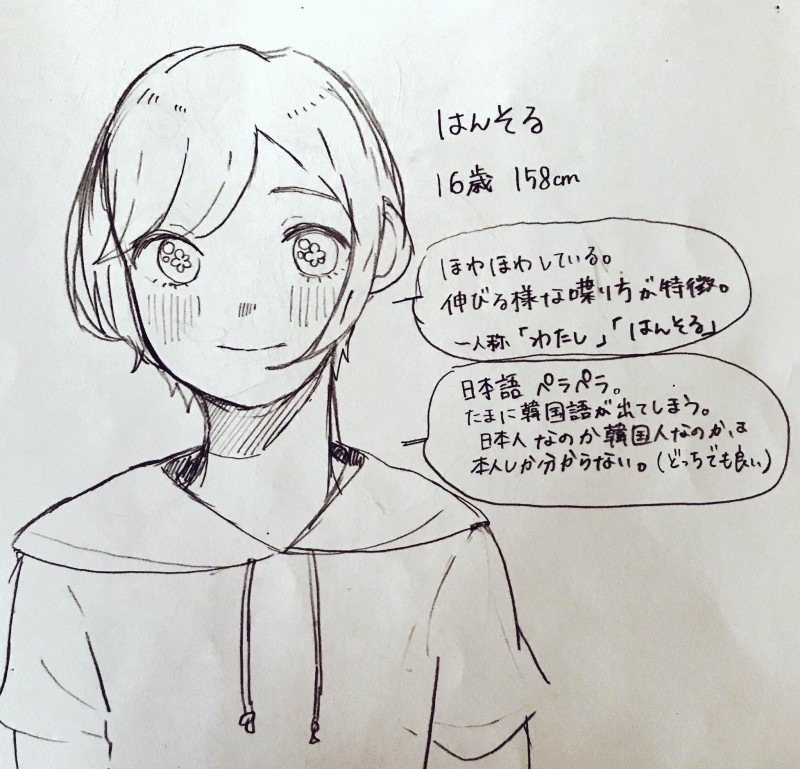 はんそる
16歳 158cm
ほわほわしている。
伸びる様な喋り方が特徴。
一人称「わたし」「はんそる」
日本語 ペラペラ。
たまに韓国語が出てしまう。
日本人なのか韓国人なのか、は
本人しか分からない。(どっちでも良い)